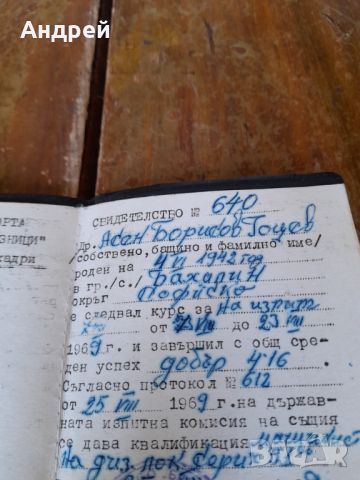 Андрей
ОРТА
ЗНИЦИ"
кадри
СВИДЕТЕЛСТВО № 640
Др. Асен Борисов Гоцев
/собствено, бащино и фамилно име/
роден на 4 VI 1942 год
в гр./с./
окръг Софийско
е следвал курс за
от VII до 23 VIII
1969 г. и завършил с общ сре-
ден успех добър 4.16
Съгласно протокол № 612
от 25 VIII 1969 г. на държав-
ната изпитна комисия на същия
се дава квалификация машинист
на диз. лок. серия
BAZAR